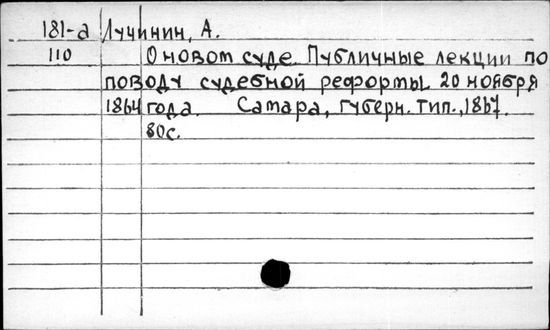 181-а Лучинин, А.
110 О новом суде. Публичные лекции по
поводу судебной реформы 20 ноября
1864 года. Самара, Губерн. тип., 1867.
80с.